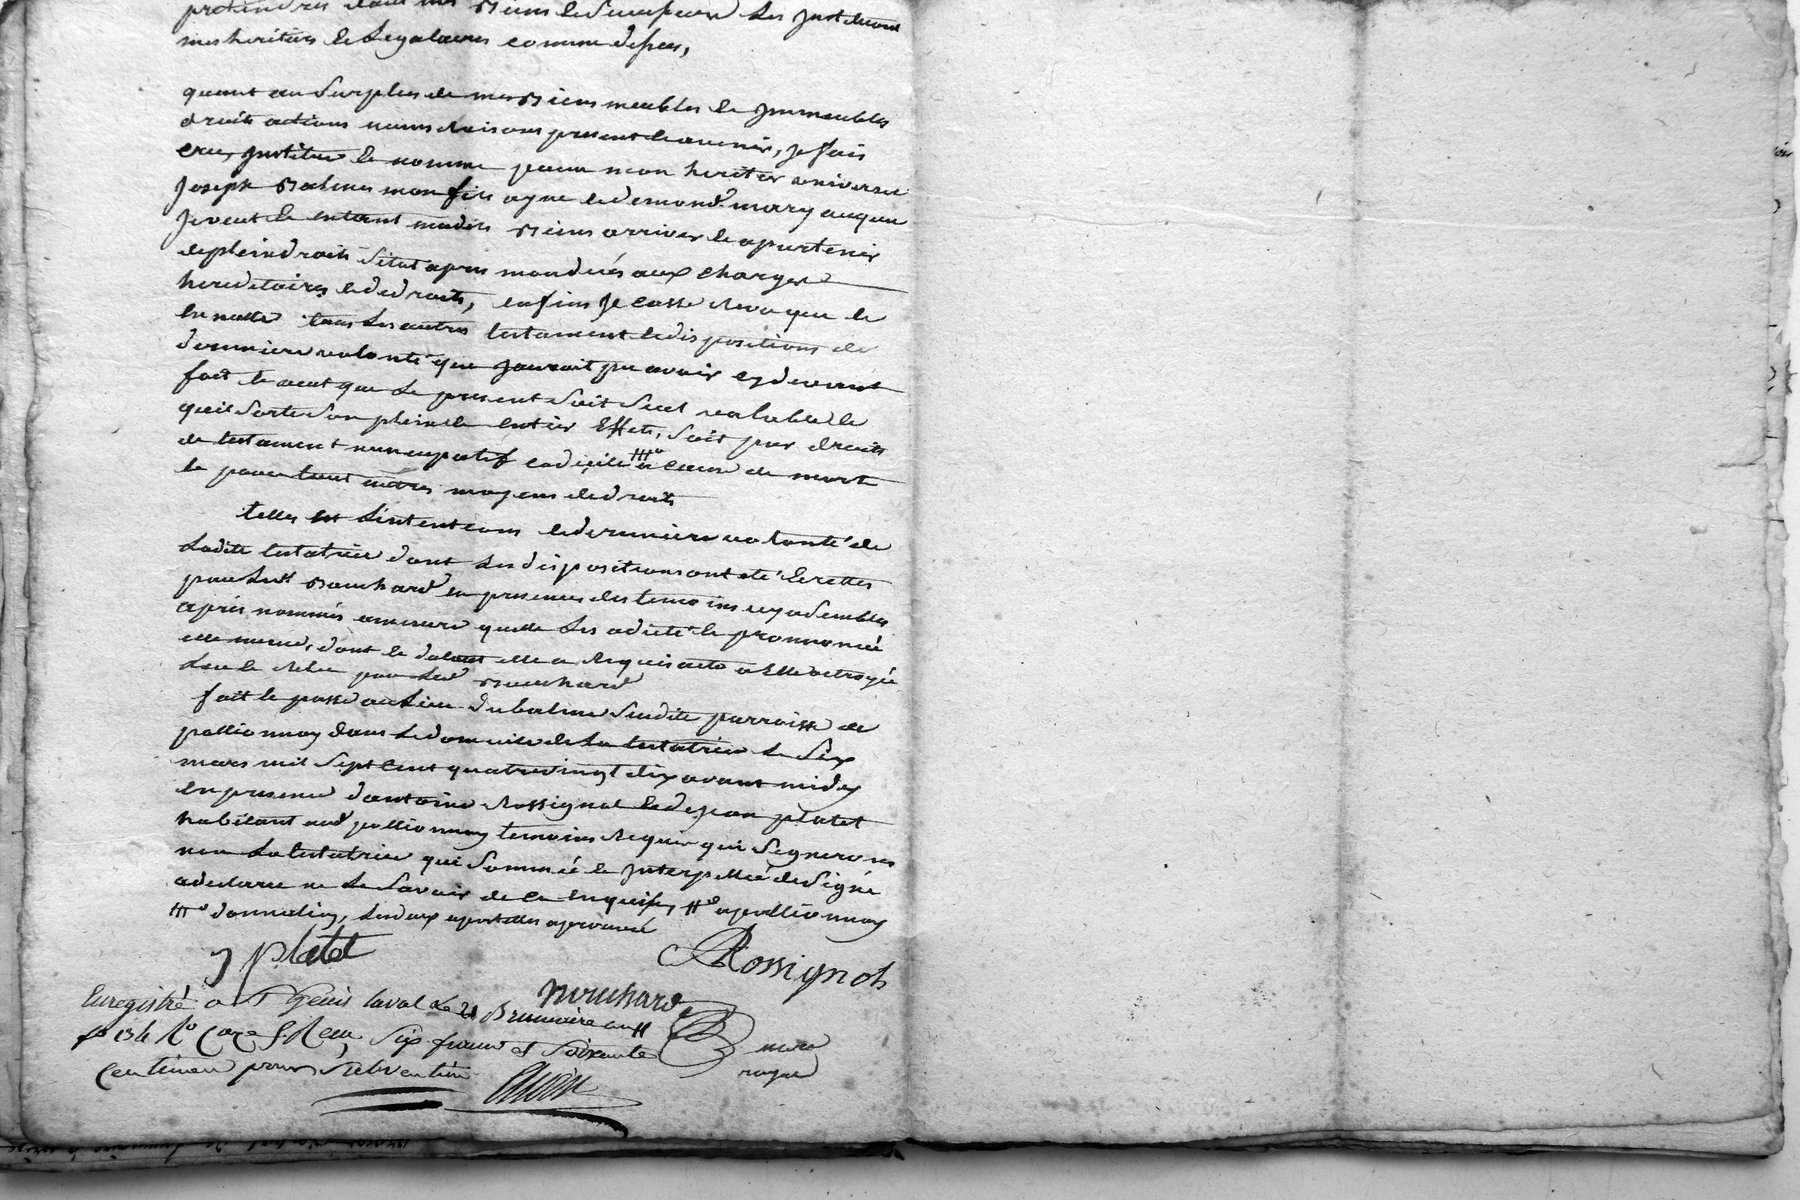 pretendres dans mes Biens les
mes heritiers & Legataires comme dessus,
quant au Surplus de mes Biens meubles & Jmmeubles
droits actions noms Raisons present & avenir, Je fais
cree, Jnstitue & nomme pour mon heritier universel
Joseph Balme mon fils ayne & de
Je veut & entant mesdits Biens arriver & apartenir
de plein droit Sitot apres mon deces aux charges
hereditaires & de droits, enfin Je casse Revoque &
Annulle tous Les autres testament & dispositions de
derniere volonté que Jaurois pu avoir cy devant
fait & veut que Le present Soit Seul valable &
quil Sorte Son plein & entier Effets, Soit par droits
de testament nuncupatif codicille a cause de mort
& pour tout autres moyens de droits
telles est Lintentions & derniere volonté de
Ladite testatrice dont Les dispositions ont eté Ecrittes
par Led Bouchard en presence des temoins cy
après nommés amesure quelle Les a dicté & prononcée
elle meme, dont & du tout elle a Requis acte a Elle octroyée
Leu & Relu par Led Bouchard
fait & passé au Lieu du balme Susdite parroisse de
pollionnay dans Le domicile de La testatrice Le Six
mars mil Sept cent quatrevingt dix avant midy
en presence d'antoine Rossignol & de Jean platet
habitant aud pollionnay temoins Requis qui Signeront
non La testatrice qui Sommée & Jnterpellée de Signé
a declaré ne Le Savoir de ce enquise, a pollionnay
donnation, Les deux apostilles aprouvé
J platet
Rossignol
Bouchard
no.re
royal
Enregistré a St Genis laval Le 21 Brumaire an
fo 134 Ro Case Six francs et Soixante
Centimes pour Subvention